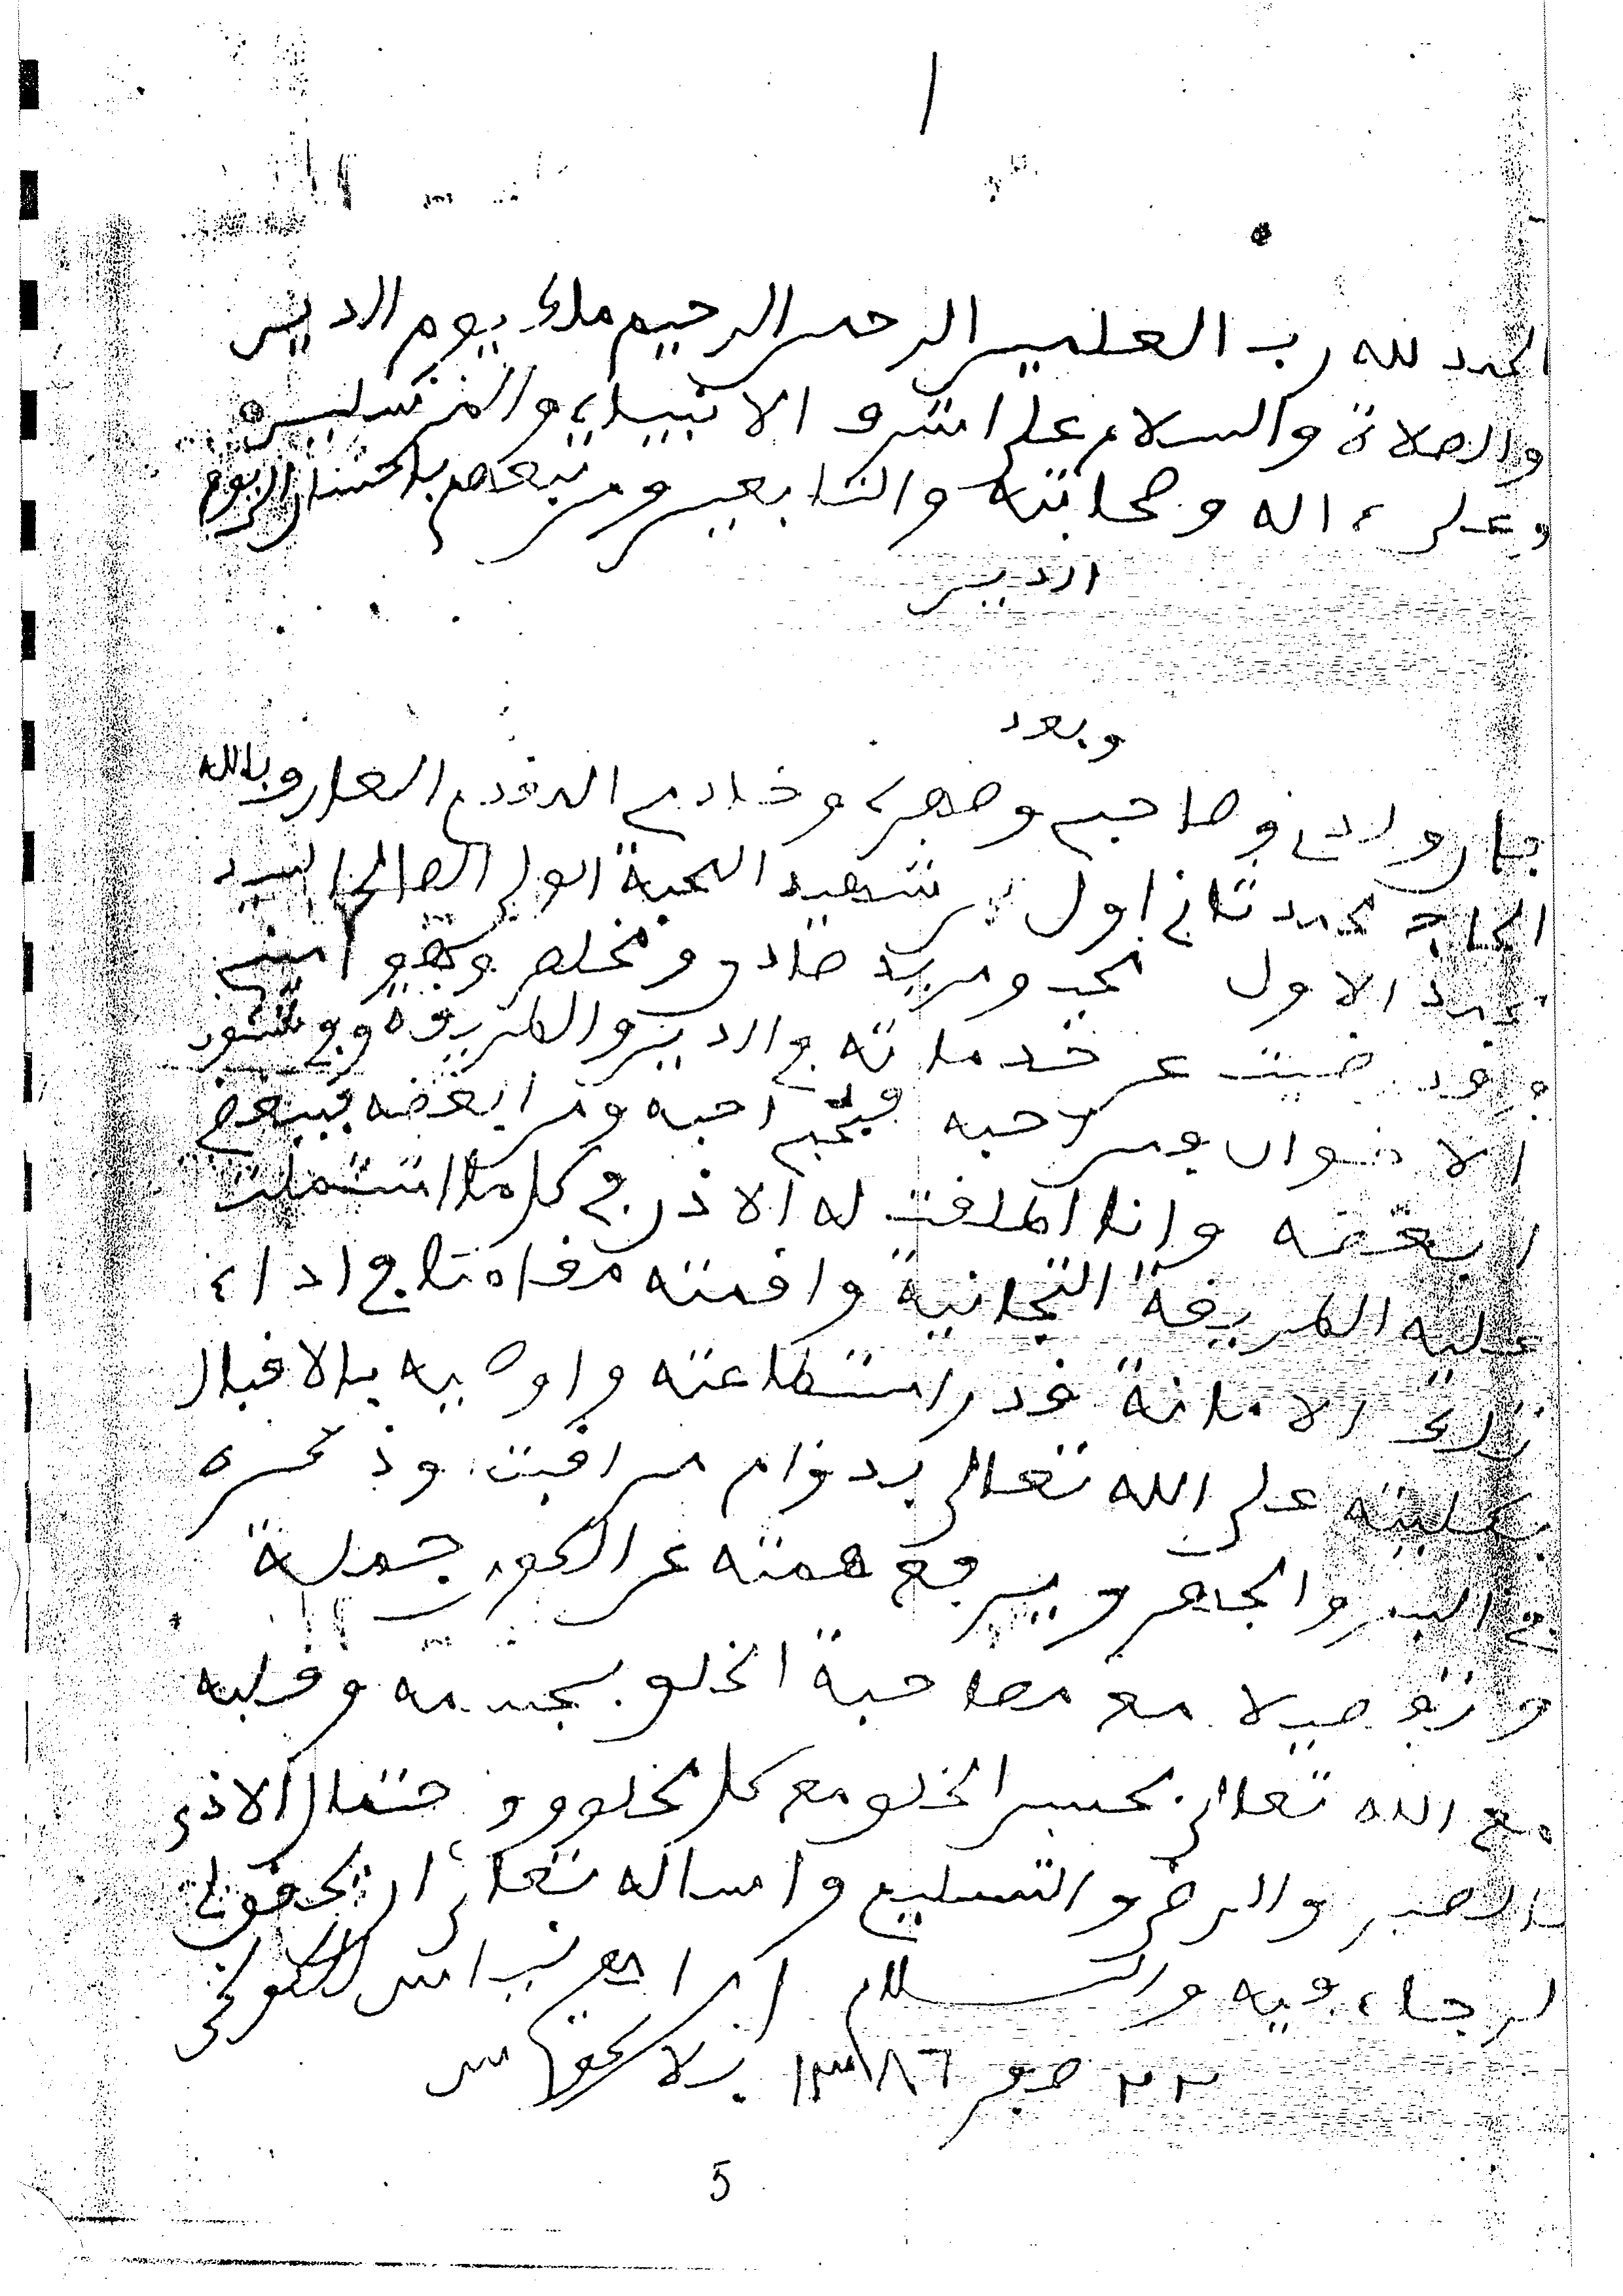 الحمد لله رب العلمين الرحمن الرحيم ملك يوم الدين
والصلاة والسلام على اشرف الانبياء والمرسلين
وعلى ءاله وصحابته والتابعين ومن تبعهم باحسان الى يوم
الدين
وبعد
فان ولدي وصاحبي وصهري وخادمي المقدم العارف بالله
الحاج محمد ثاني اول بن شهيد المحبة الولي الصالح السيد
محمد الاول محب ومريد صادق ومخلص وتقي امين
وقد رضيت عن خدماته في الدين والطريقة وفي شئون
الاخوان فمن احبه فبحبي احبه ومن ابغضه فببغضي
ابغضه وانا اطلقت له الاذن في كل ما اشتملت
عليه الطريقة التجانية واقمته مقامنا في اداء
تلك الامانة قدر استطاعته واوصيه بالاقبال
بكليته على الله تعالى بدوام مراقبته وذكره
في السر والجهر ويرفع همته عن الكون جملة
وتفصيلا مع مصاحبة الخلق بجسمه وقلبه
مع الله تعالى بحسن الخلق مع كل مخلوق واحتمال الاذى
والصبر والرضى والتسليم واساله تعالى ان يحقق لي
الرجاء فيه والسلام ابراهيم نياس الكولخي
٢٢ صفر ١٣٨٦
5